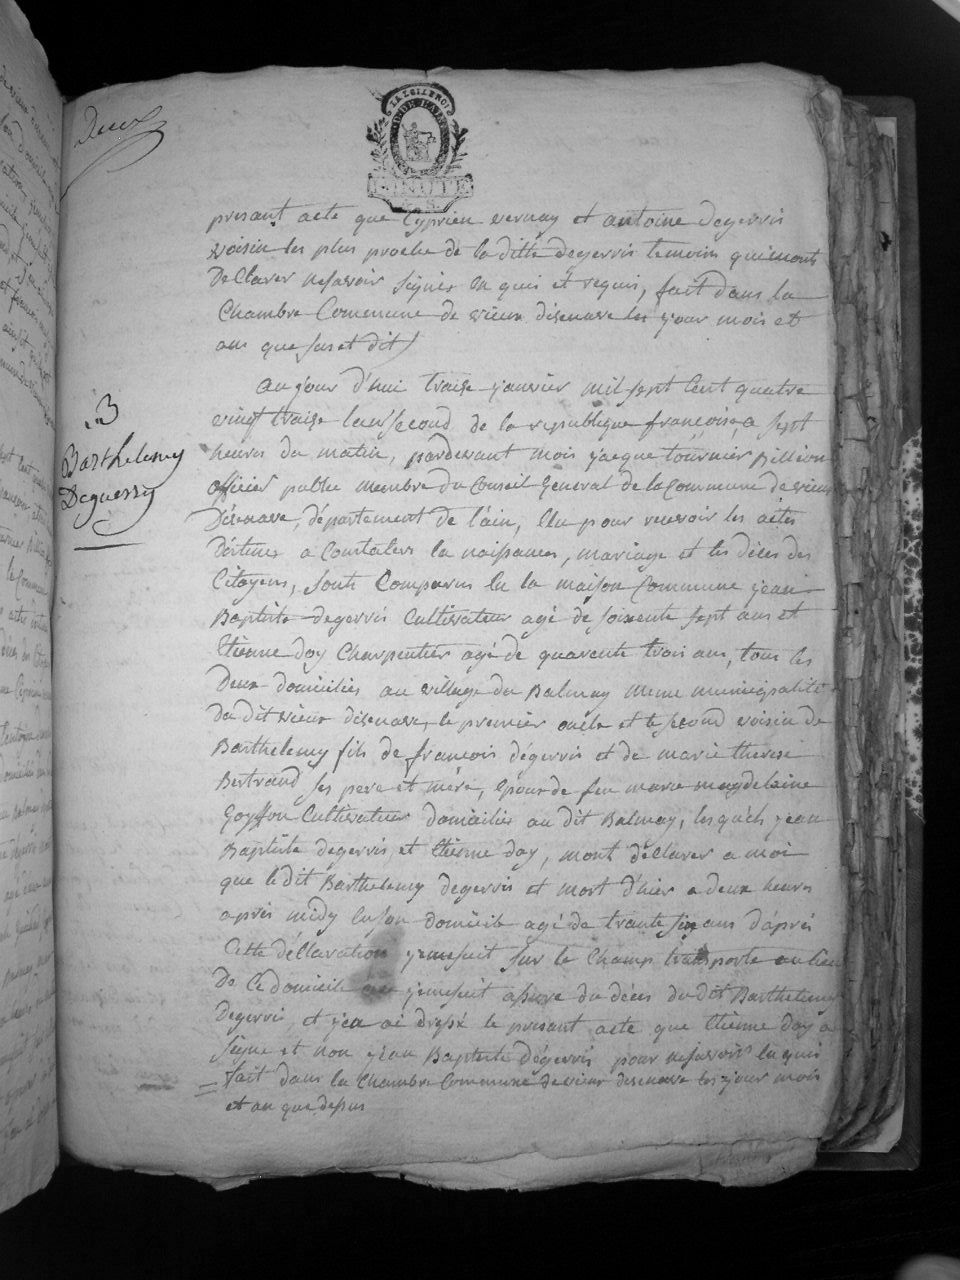 Deux
LA LOI LE ROI
MINUTE
4. S.
presant acte que Cyprien vernay et antoine degerris
voisin les plus proche de la ditte degerris temoins qui mont
declarer ne savoir signer en quis et requis, fait dans la
Chambre Commune de vieux disenave les jour mois et
ans que sus et dit
3
Barthelemy
Deguerry
au jour d'hui traise janvier mil sept cent quatre
vingt traize lan second de la republique françoise, a sept
heures du matin, pardevant mois jacque tournier Billion
officier public membre du Conseil General de la Commune de vieux
disenave, département de l'ain, Elu pour recevoir les actes
détines a Constaters la naissances, mariage et les déces des
Citoyens, sonts Comparus en la maison Commune jean
Baptiste degerris Cultivateur agé de soixente sept ans et
Etienne doy Charpentier agé de quarente trois ans, tous les
Deux domiciliés au village du Balmay meme municipalité
du dit vieux disenave, le premier oncle et le second voisin de
Barthelemy fils de francois dégerris et de marie therese
Bertrand ses pere et mére, Epour de feu marie magdelaine
Goyffon Cultivateur domicilies au dit Balmay, lesquels jean
Baptiste degerris et Etienne doy, mont déclarer a moi
que le dit Barthelemy degerris et mort d'hier a deux heures
aprés midy en son domicile agé de trante six ans d'aprés
Cette déclaration je me suit sur le Champ transporte au lieu
De Ce domicile je me suit assure du déces du dit Barthelemy
Degerris, et j'en ai dressé le presant acte que Etienne doy a
signe et non jean Baptiste dégerris pour ne savoir en quis
fait dans la Chambre Commune de vieux disenave les jour mois
et an que depus